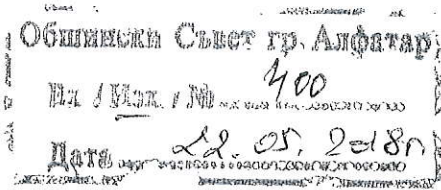 Общински Съвет гр. Алфатар
Вх / Изх. / № 400
Дата 22. 05. 2018г